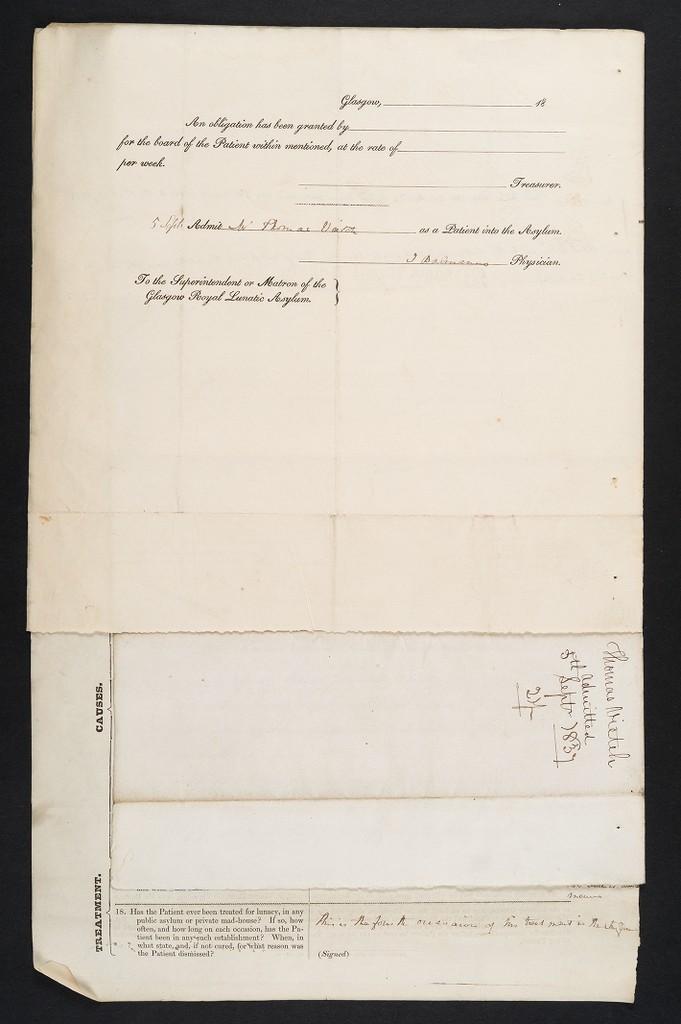 Glasgow, 18
An obligation has been granted by
for the board of the Patient within mentioned, at the rate of
per week.
Treasurer.
5 Sept Admit Mr Thomas as a Patient into the Asylum.
Physician.
To the Superintendent or Matron of the
Glasgow Royal Lunatic Asylum.
Thomas Vietch
Admitted
5th Sept 1837
CAUSES.
TREATMENT.
18. Has the Patient ever been treated for lunacy, in any
public asylum or private mad-house? If so, how
often, and how long on each occasion, has the Pa-
tient been in any such establishment? When, in
what state, and, if not cured, for what reason was
the Patient dismissed?
this is the fourth occasion of his treatment in the
(Signed)